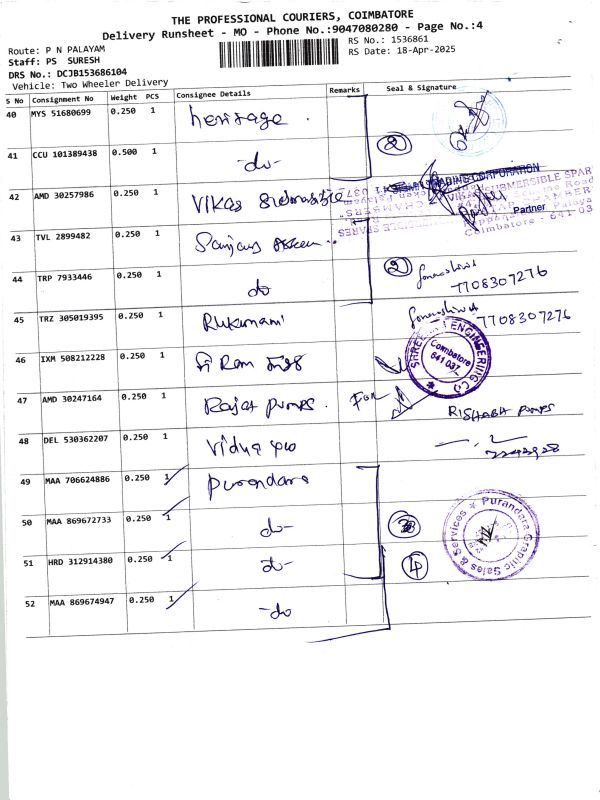 THE PROFESSIONAL COURIERS, COIMBATORE
Delivery Runsheet - MO - Phone No.:9047080280 - Page No.:4
Route: P N PALAYAM
RS No.: 1536861
Staff: PS SURESH
RS Date: 18-Apr-2025
DRS No.: DCJB153686104
Vehicle: Two Wheeler Delivery
S No Consignment No Weight PCS Consignee Details Remarks Seal & Signature
40 MYS 51680699 0.250 1 heritage.
41 CCU 101389438 0.500 1 -do- 2
42 AMD 30257986 0.250 1 Vikas
Partner
43 TVL 2899482 0.250 1 Sanjay
44 TRP 7933446 0.250 1 do 2 7708307276
45 TRZ 305019395 0.250 1 Rukumani 7708307276
46 IXM 508212228 0.250 1 Ram
SHREE ENGINEERING CO
Coimbatore
641 037
47 AMD 30247164 0.250 1 Rajat Pumps. For RISHABA PUMPS
48 DEL 530362207 0.250 1 Vidya
49 MAA 706624886 0.250 1 Purandara
50 MAA 869672733 0.250 1 do-
Purandara Graphic Sales & Services
51 HRD 312914380 0.250 1 do- 4
52 MAA 869674947 0.250 1 -do